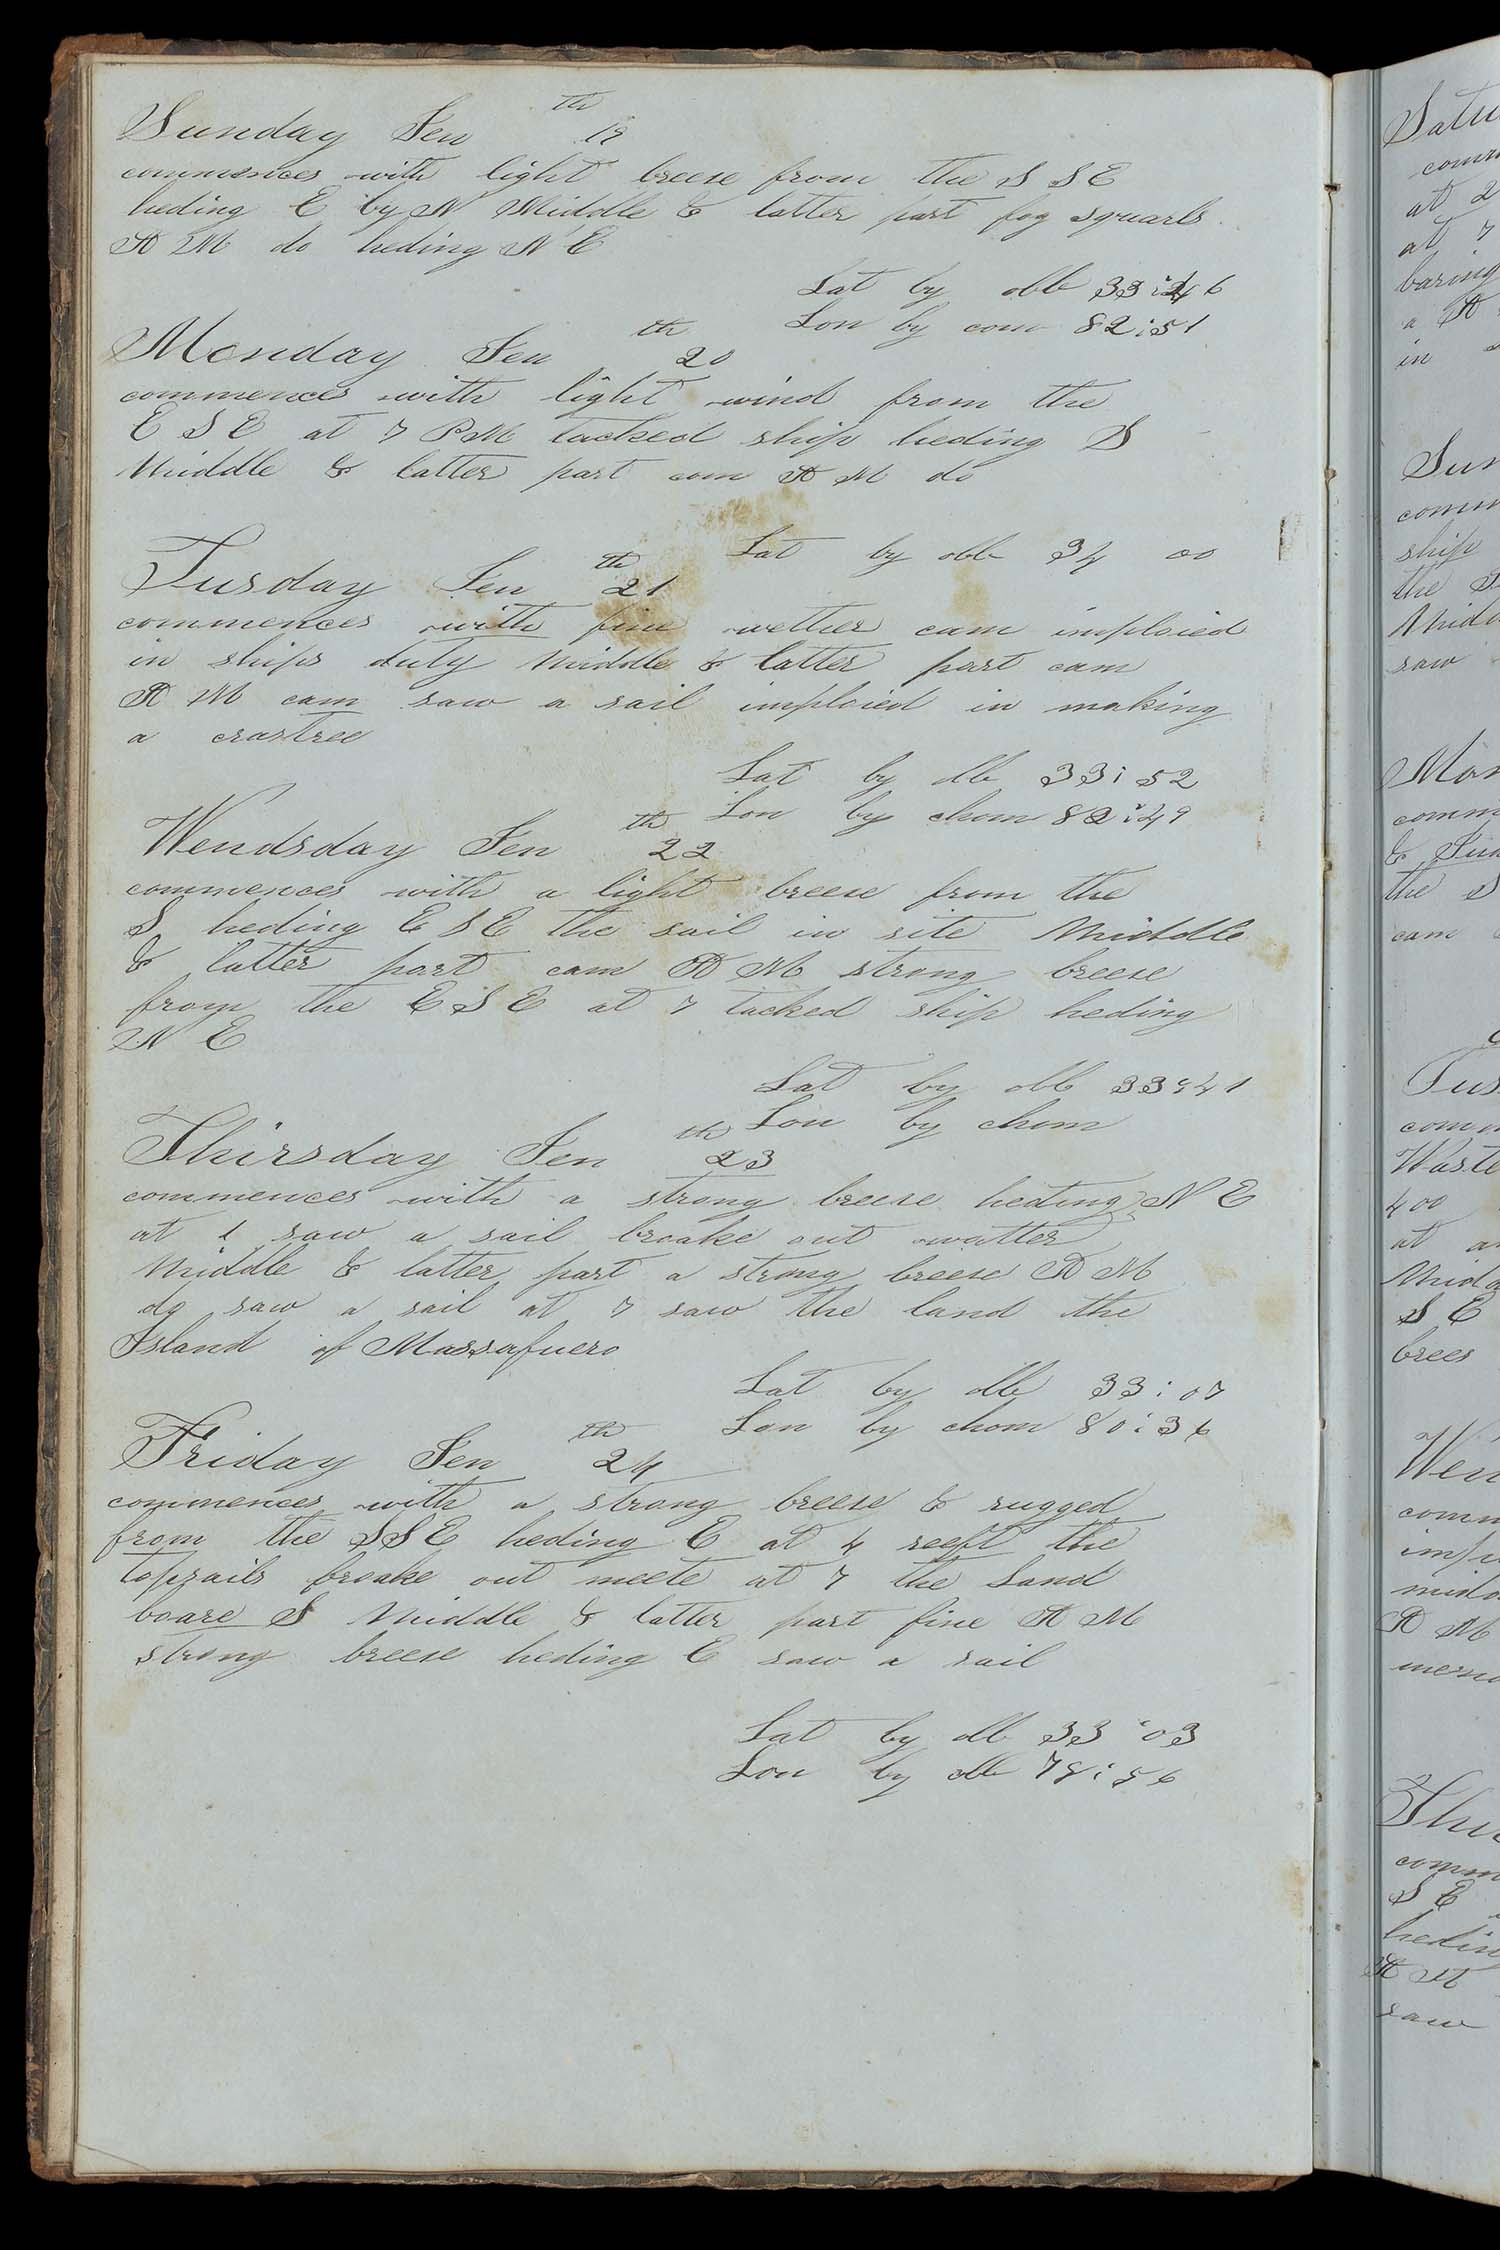 Sunday Jen 19th
commences with light breese from the S S E
heding E by N Middle & latter part fog squarls
A M do heding N E
Lat by obb 33:46
Lon by com 82:51
Monday Jen 20th
commences with light wind from the
E S E at 7 PM tacked ship heding S
Middle & latter part com A M do
Lat by obb 34 00
Tusday Jen 21th
commences with fine wether cam imploied
in ships duty Middle & latter part cam
A M cam saw a sail imploied in making
a crastree
Lat by obb 33:52
Lon by chom 82:49
Wendsday Jen 22th
commences with a light breese from the
S heding E S E the sail in site Middle
& latter part cam A M strong breese
from the E S E at 7 tacked ship heding
N E
Lat by obb 33:41
Lon by chom
Thirsday Jen 23th
commences with a strong breese heding N E
at 1 saw a sail broake out watter
Middle & latter part a strong breese A M
do saw a sail at 7 saw the land the
Island of Massafuero
Lat by obb 33:07
Lon by chom 80:36
Friday Jen 24th
commences with a strong breese & rugged
from the S S E heding E at 4 reeft the
topsails broake out meete at 7 the Land
boare S Middle & latter part fine A M
strong breese heding E saw a sail
Lat by obb 33:03
Lon by obb 78:56
Satu
at 2
at 7
baring
a A
in
Sun
comm
ship
the S
Midd
saw
Mon
comm
&
the S
cam
Tus
comm
Waste
400
at
Midd
S E
brees
Wen
comm
midd
A M
Thu
comm
S E
heding
A M
saw